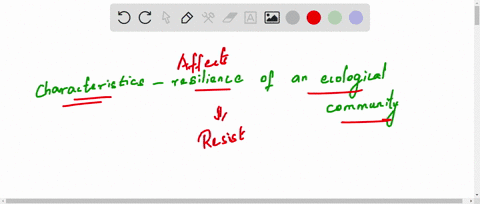 Affects
Characteristics - resilience of an ecological
community
Resist